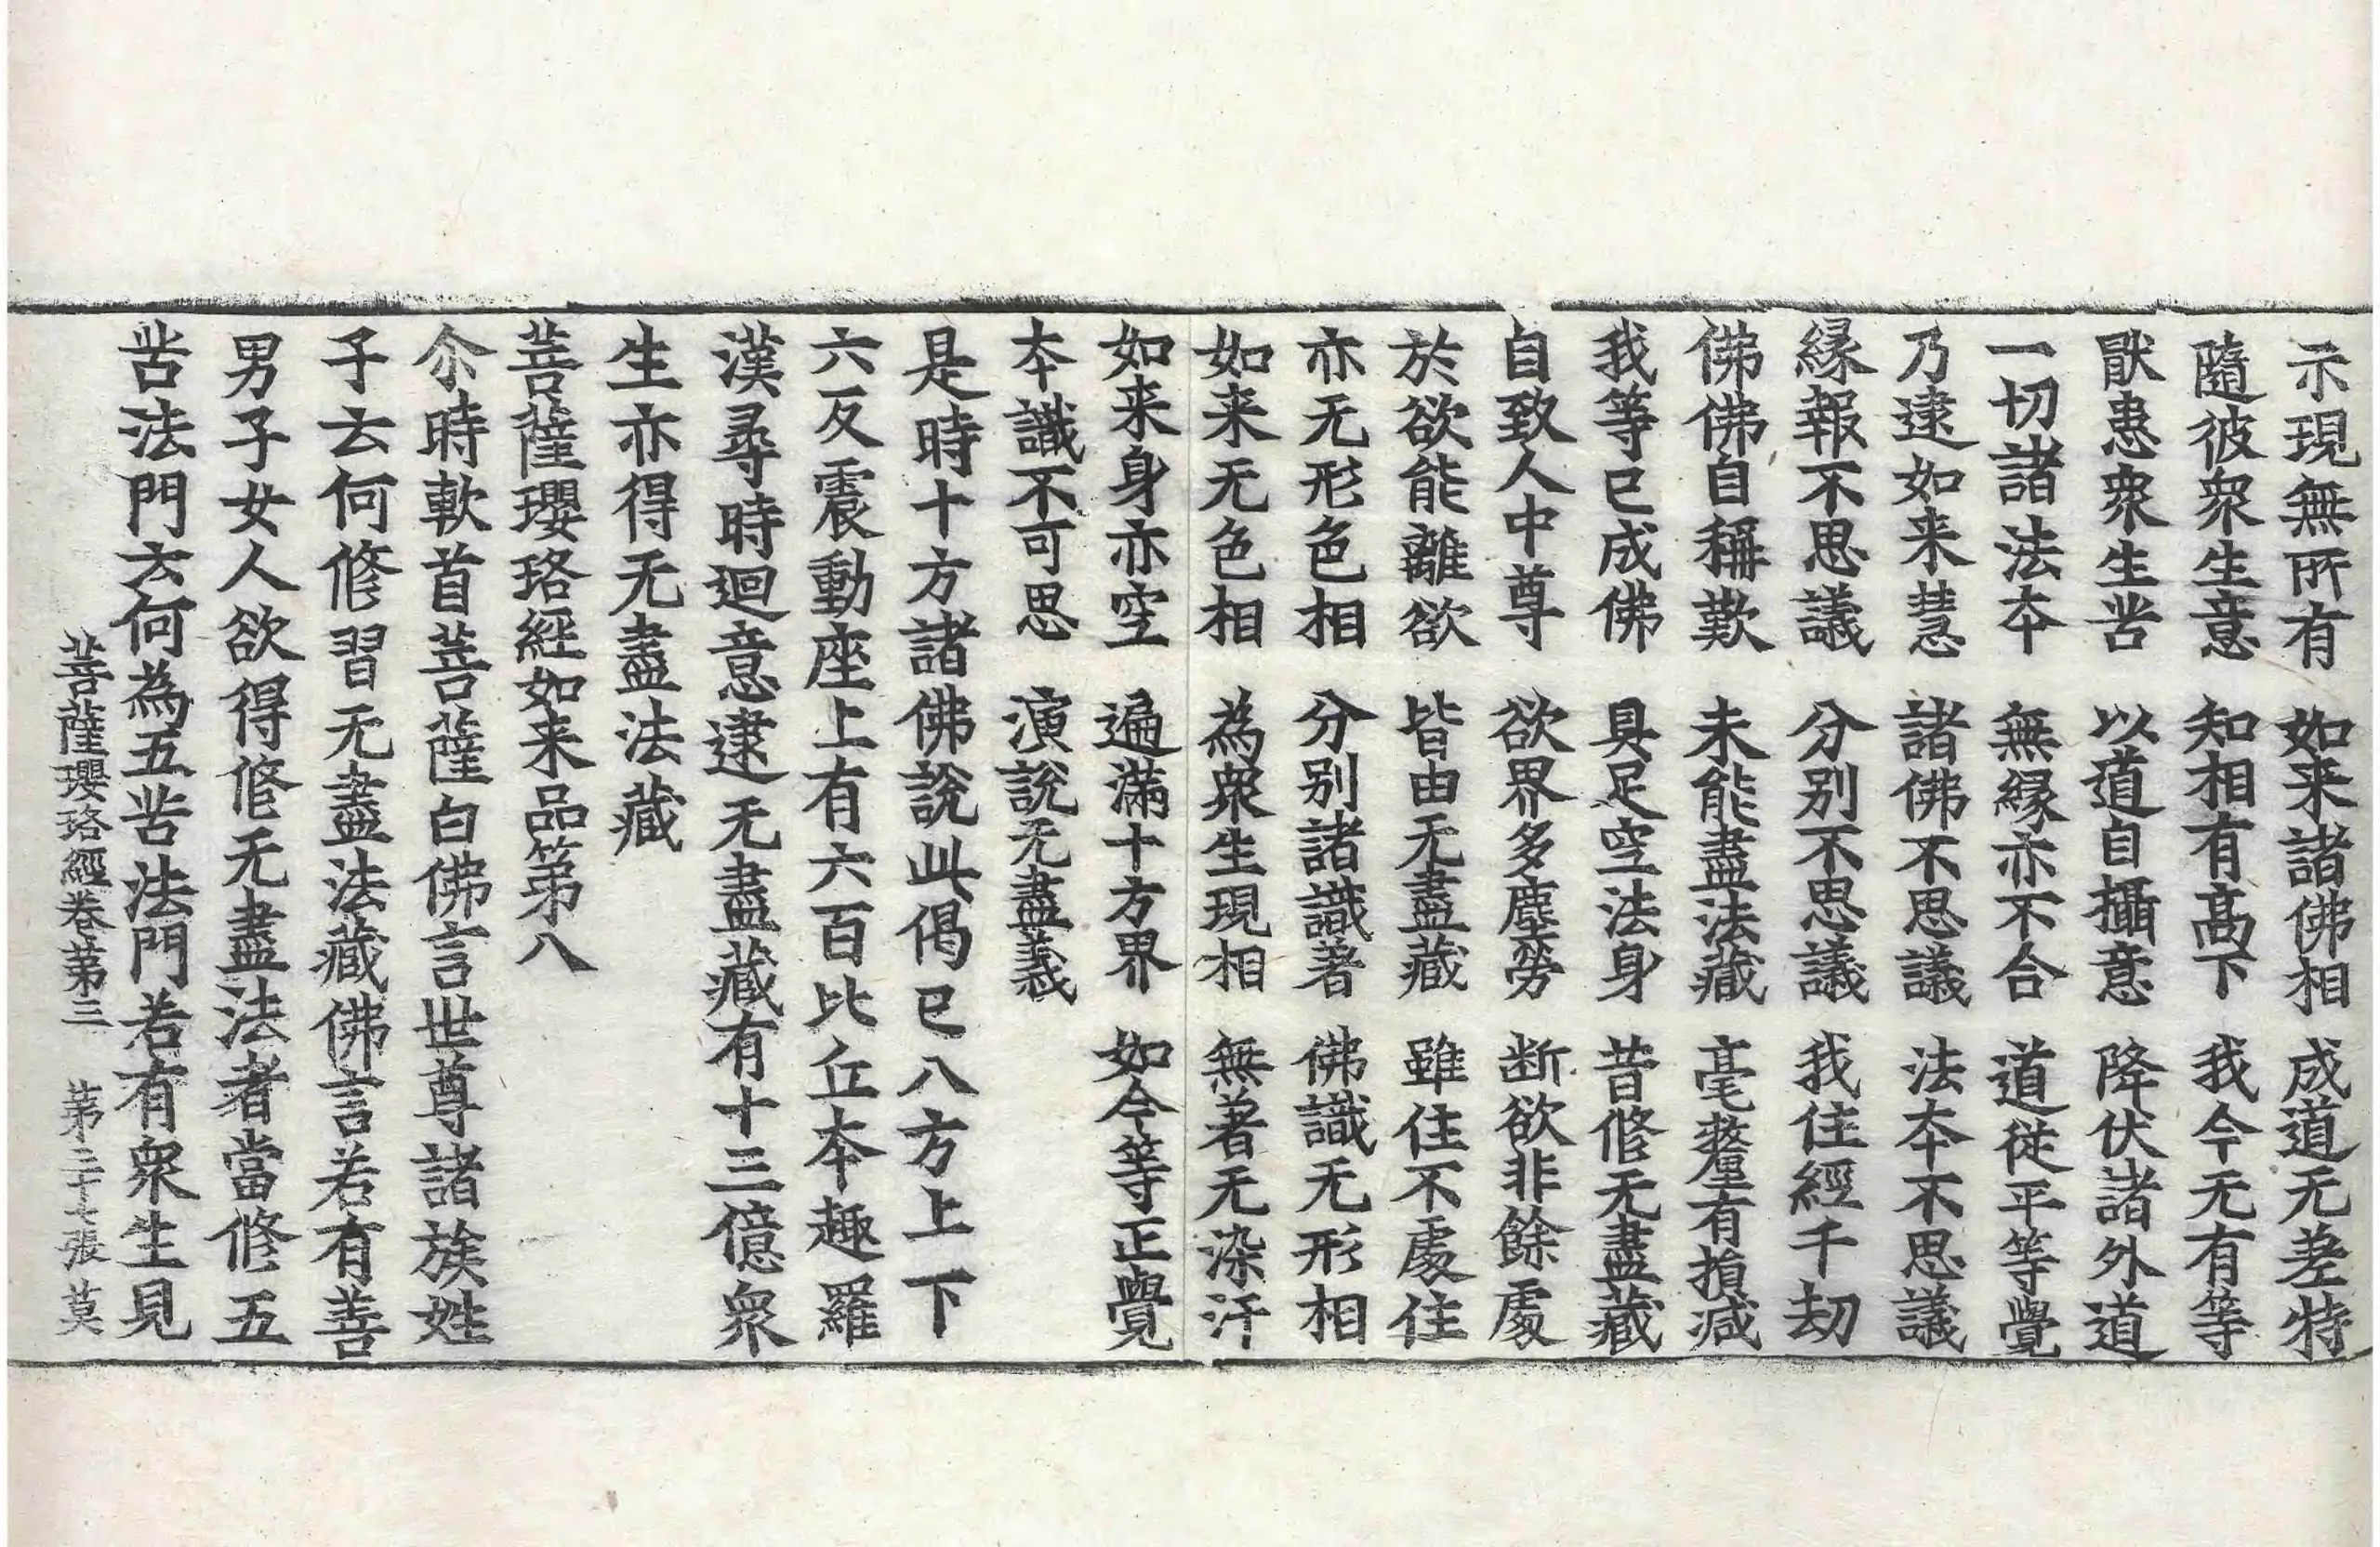 示現無所有 如来諸佛相 成道无差特
隨彼衆生意 知相有高下 我今无有等
猒患衆生苦 以道自攝意 降伏諸外道
一切諸法本 無緣亦不合 道從平等覺
乃逮如来慧 諸佛不思議 法本不思議
緣報不思議 分别不思議 我住經千劫
佛佛自稱歎 未能盡法藏 毫氂有損減
我等已成佛 具足空法身 昔修无盡藏
自致人中尊 欲界多塵勞 断欲非餘處
於欲能離欲 皆由无盡藏 雖住不處住
亦无形色相 分别諸識著 佛識无形相
如来无色相 為衆生現相 無著无染汙
如来身亦空 遍滿十方界 如今等正覺
本識不可思 演說无盡義
是時十方諸佛說此偈已八方上下
六反震動座上有六百比丘本趣羅
漢尋時迴意逮无盡藏有十三億衆
生亦得无盡法藏
菩薩瓔珞經如来品第八
尒時軟首菩薩白佛言世尊諸族姓
子云何修習无盡法藏佛言若有善
男子女人欲得修无盡法者當修五
苦法門云何為五苦法門若有衆生見
菩薩瓔珞經卷第三 第二十七張 莫